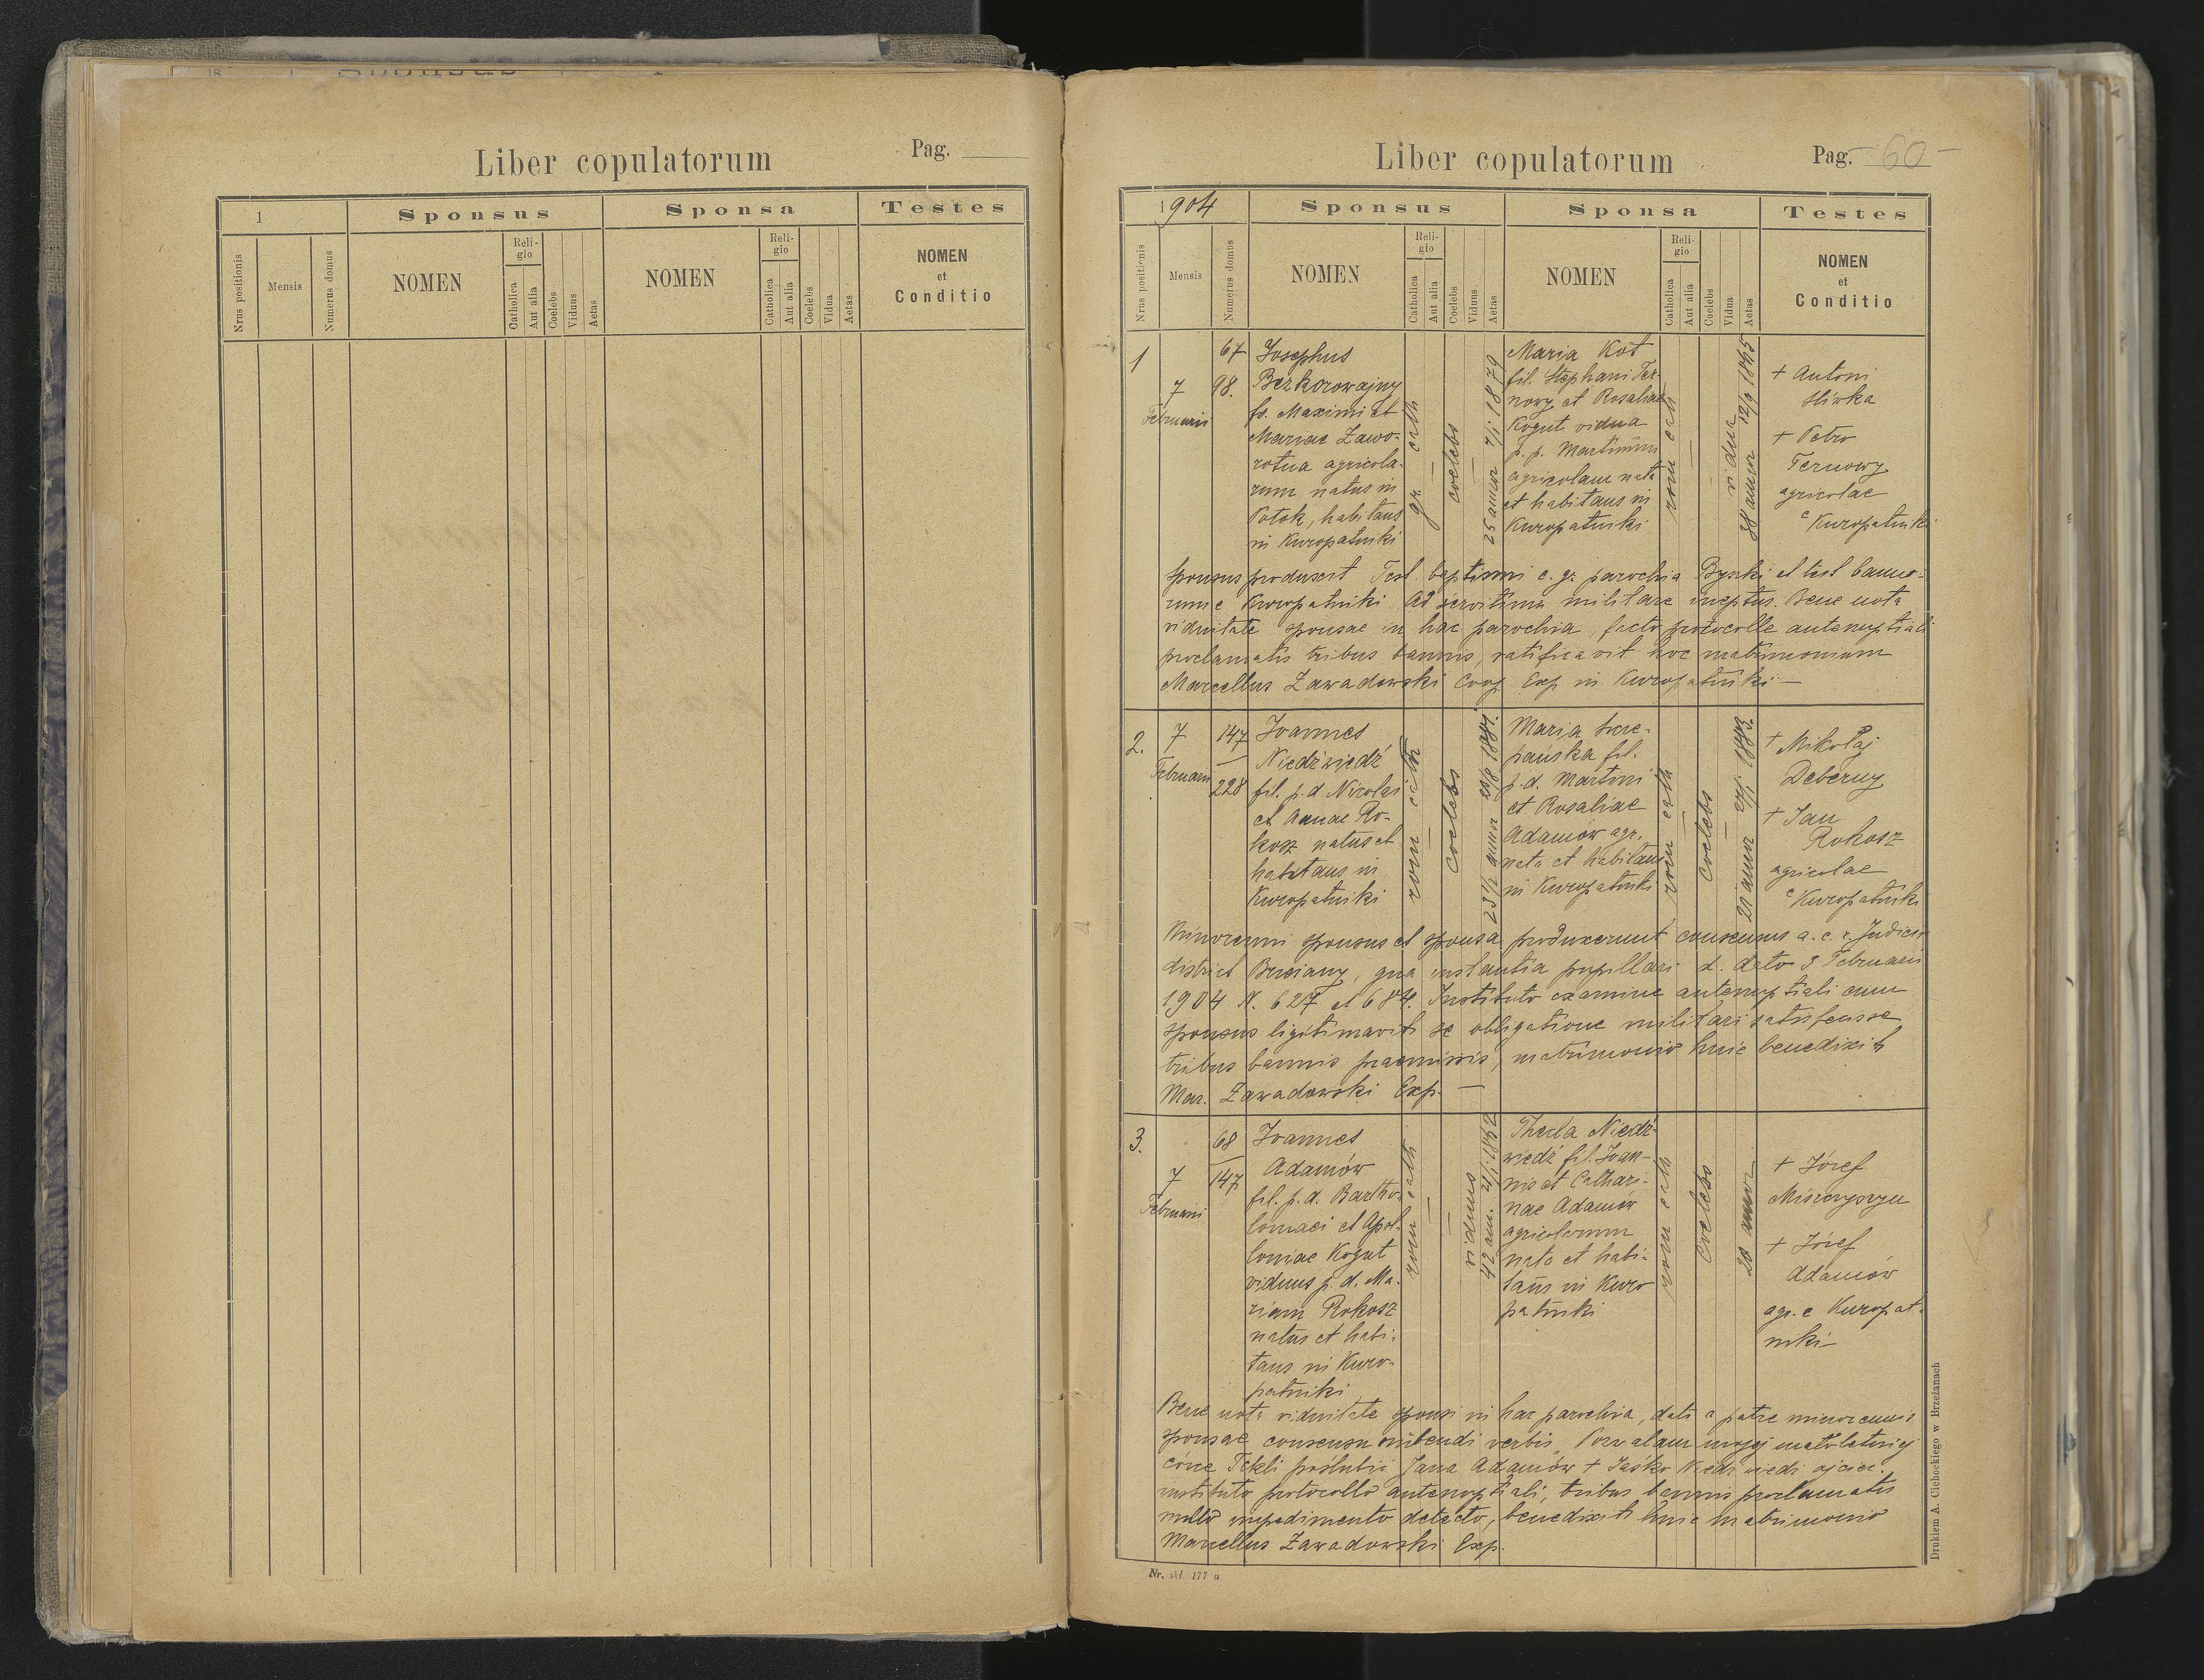 Liber copulatorum
Pag.
1
Sponsus
Sponsa
Testes
Nrus positionis
Mensis
Numerus domus
NOMEN
Religio
Catholica
Aut alia
Coelebs
Viduus
Aetas
NOMEN
Religio
Catholica
Aut alia
Coelebs
Vidua
Aetas
NOMEN
et
Conditio
Liber copulatorum
Pag. - 60 -
1904
Sponsus
Sponsa
Testes
Nrus positionis
Mensis
Numerus domus
NOMEN
Religio
Catholica
Aut alia
Coelebs
Viduus
Aetas
NOMEN
Religio
Catholica
Aut alia
Coelebs
Vidua
Aetas
NOMEN
et
Conditio
1
7
Februarii
67
98.
Josephus
Bezkorowajny
fs. Maximi et
Mariae Zawo-
rotna agricola-
rum natus in
Potok, habitans
in Kuropatniki
gr. cath
coelebs
25 annor 7/1 1879
Maria Kot
fil. Stephani Ter-
nowy et Rosaliae
Kogut vidua
p. p. Martinum
agricolam nata
et habitans in
Kuropatniki
rom cath
vidua
38 annor 12/9 1865
+ Antoni
Sliwka
+ Petro
Ternowy
agricolae
e Kuropatniki
Sponsus produxit Test. baptismi e. gr. parochia Byszki et test banno-
rum e Kuropatniki. Ad servitium militare ineptus. Bene nota
viduitate sponsae in hac parochia, facto protocollo antenuptiali
proclamatis tribus bannis, ratificavit hoc matrimonium
Marcellus Zawadowski Coop. Exp in Kuropatniki —
2.
7
Februarii
147
228
Joannes
Niedźwiedź
fil. p. d. Nicolai
et Annae Ro-
kosz natus et
habitans in
Kuropatniki
rom cath
coelebs
23 1/2 annor
Maria Szcze-
pańska fil.
p. d. Martini
et Rosaliae
Adamów agr.
nata et habitans
in Kuropatniki
rom cath
coelebs
21 annor 27/1 1883.
+ Mikołaj
Deberny
+ Jan
Rokosz
agricolae
e Kuropatniki
Minorenni sponsus et sponsa produxerunt consensus a. c. r. Judicii
district Brzeżany, qua instantia pupillari d. dato 3 Februarii
1904 N. 627 et 684. Instituto examine antenuptiali cum
sponsus ligitimavit se obligatione militari satisfecisse
tribus bannis praemissis, matrimonio huic benedixit
Mar. Zawadowski Exp. —
3.
7
Februarii
68
147
Joannes
Adamów
fil. p. d. Bartho-
lomaei et Apol-
loniae Kogut
viduus p. d. Ma-
riam Rokosz
natus et habi-
tans in Kuro-
patniki
rom cath
viduus
42 ann. 21/1 1862
Thecla Niedź-
wiedź fil. Joan-
nis et Cathari-
nae Adamów
agricolarum
nata et habi-
tans in Kuro
patniki
rom cath
coelebs
20 annor
+ Józef
Miszczyszyn
+ Józef
Adamów
agr. e Kuropat-
niki
Bene nota viduitate sponsi in hac parochia, dato a patre minorennis
sponsae consensu nubendi verbis „Pozwalam mojej małoletniej
córce Tekli poślubić Jana Adamów + Jaśko Niedźwiedź ojciec.
instituto protocollo antenuptiali, tribus bannis proclamatis
nullo impedimento detecto, benedixit huic matrimonio
Marcellus Zawadowski Exp.
Nr. skł. 177 a
Drukiem A. Cichockiego w Brzeżanach